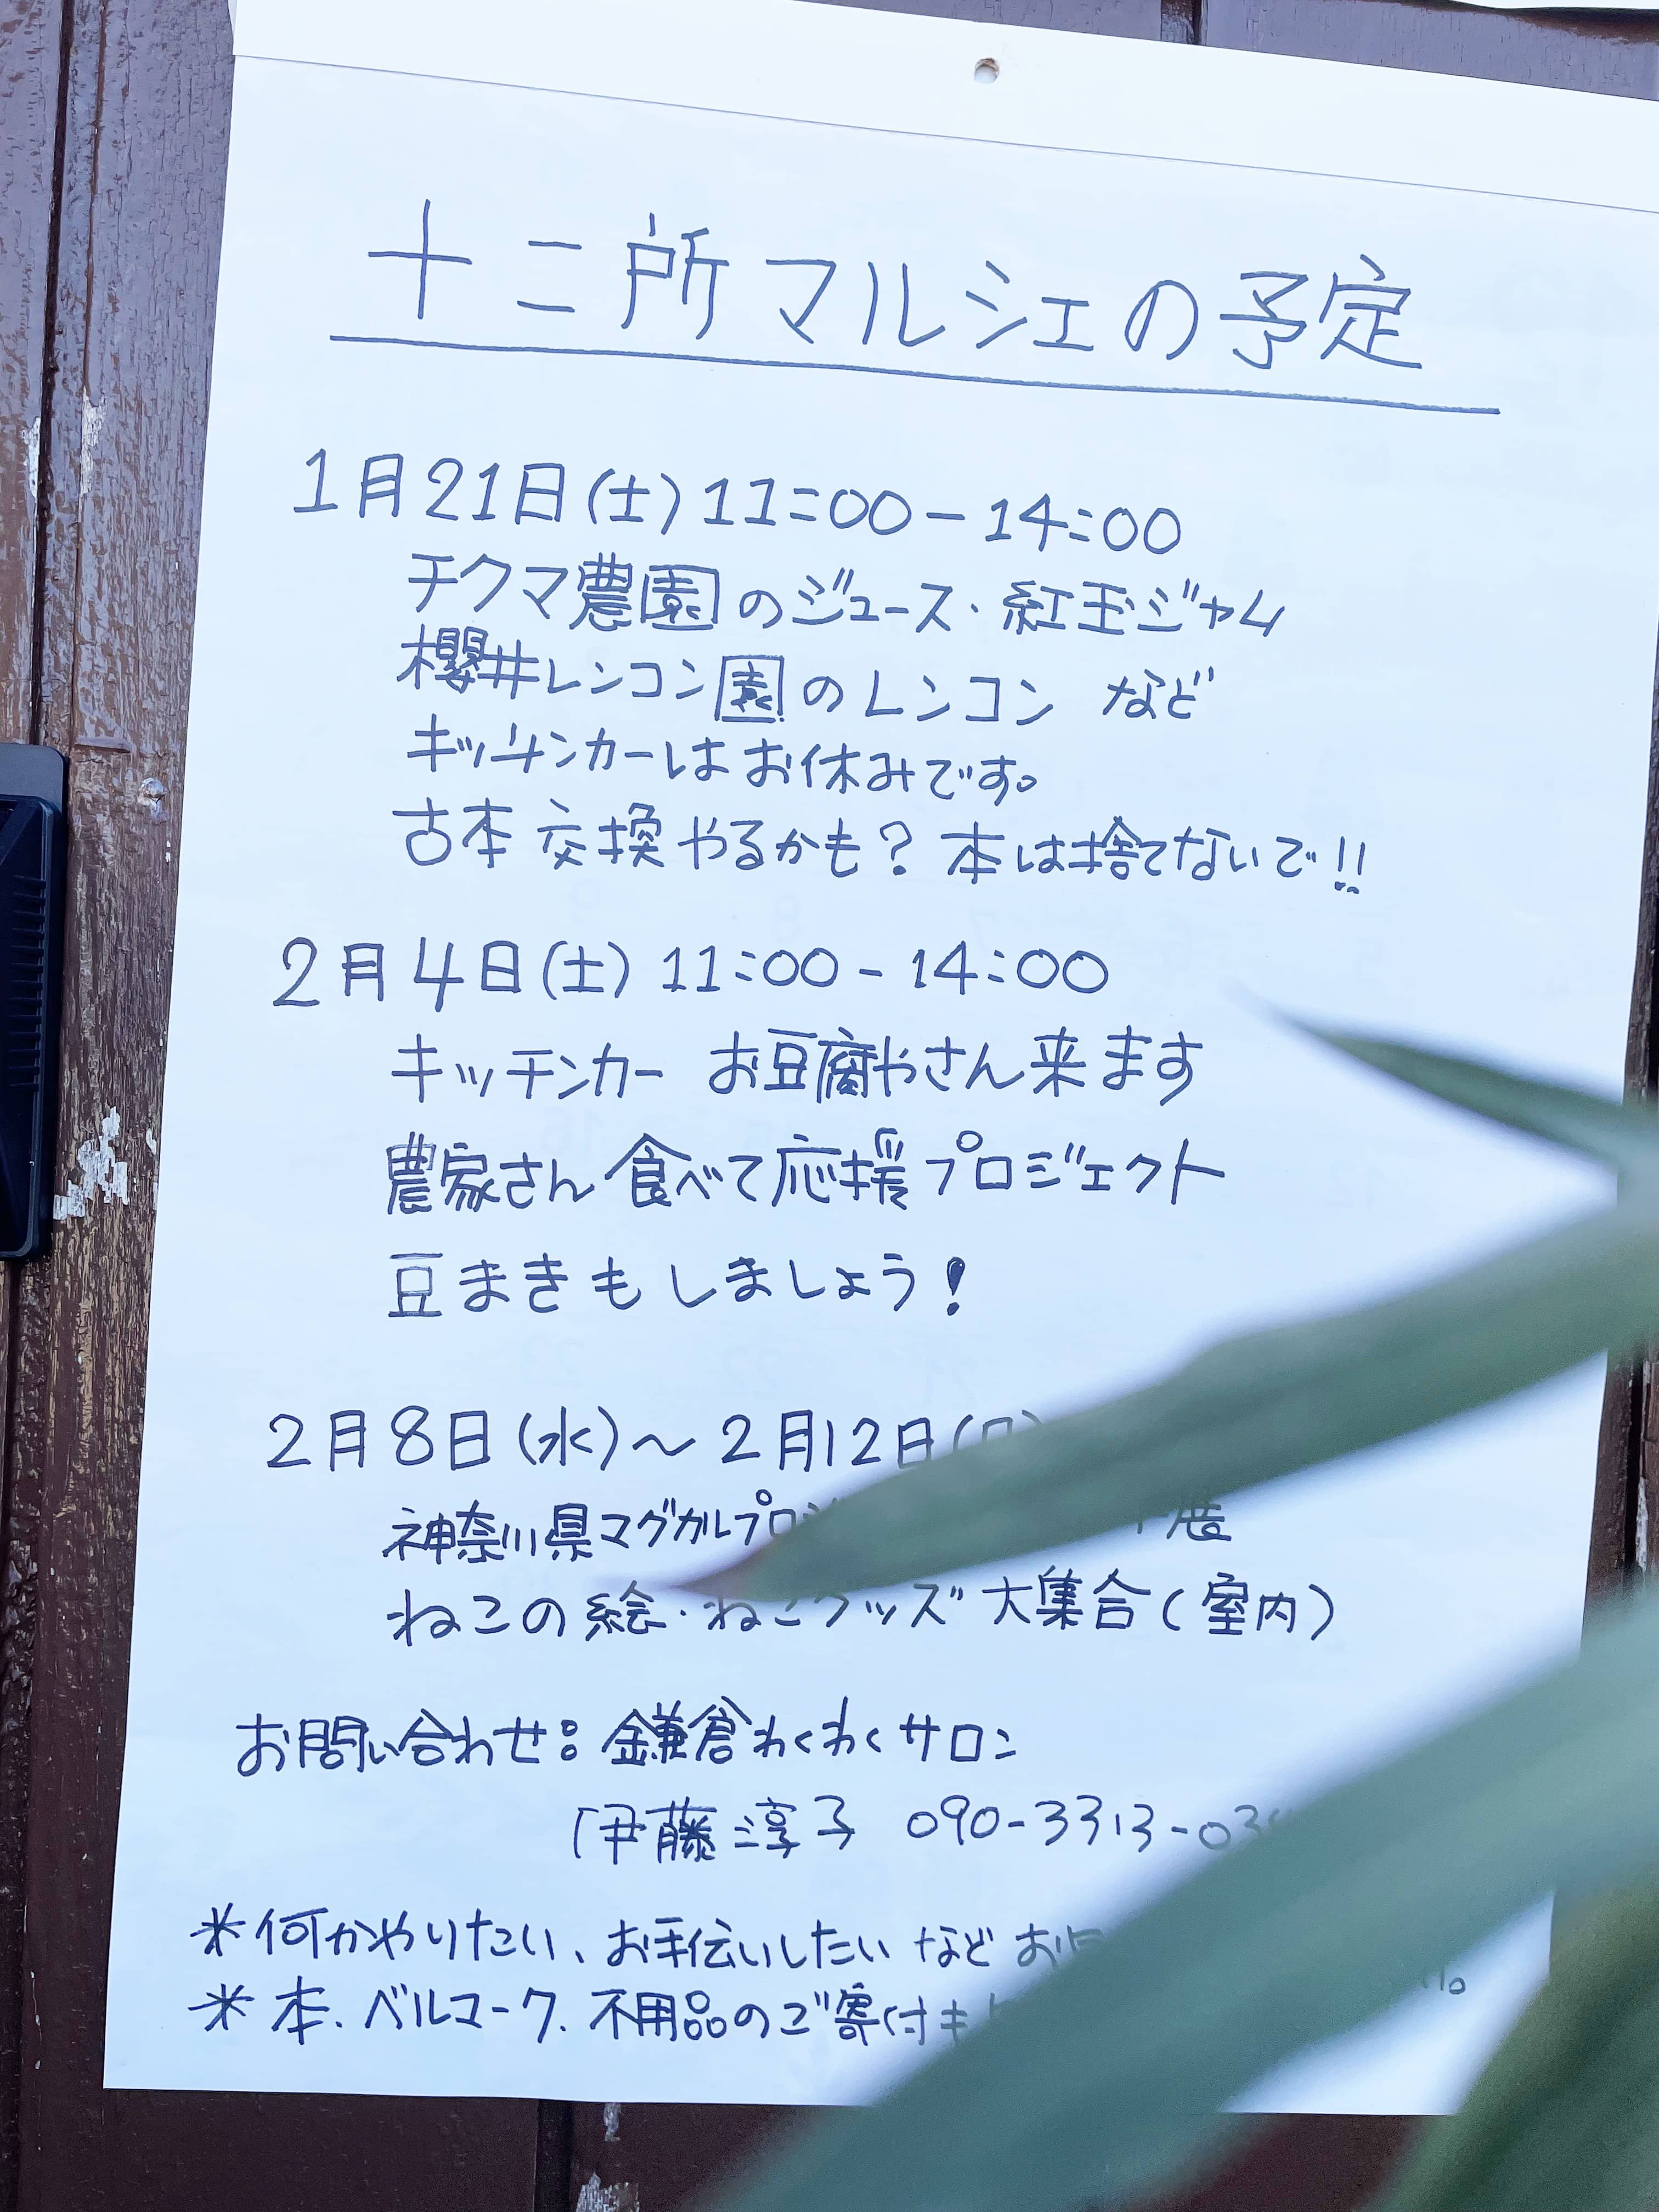 十二所マルシェの予定
1月21日(土)11:00-14:00
チクマ農園のジュース・紅玉ジャム
櫻井レンコン園のレンコン など
キッチンカーはお休みです。
古本交換やるかも?本は捨てないで!!
2月4日(土)11:00-14:00
キッチンカー お豆腐やさん来ます
農家さん食べて応援プロジェクト
豆まきもしましょう!
2月8日(水)~2月12日(日)
神奈川県マグカルプロジ 展
ねこの絵・ねこグッズ大集合(室内)
お問い合わせ:鎌倉わくわくサロン
伊藤淳子 090-3313-03
*何かやりたい、お手伝いしたい など お
*本.ベルマーク.不用品のご寄付も